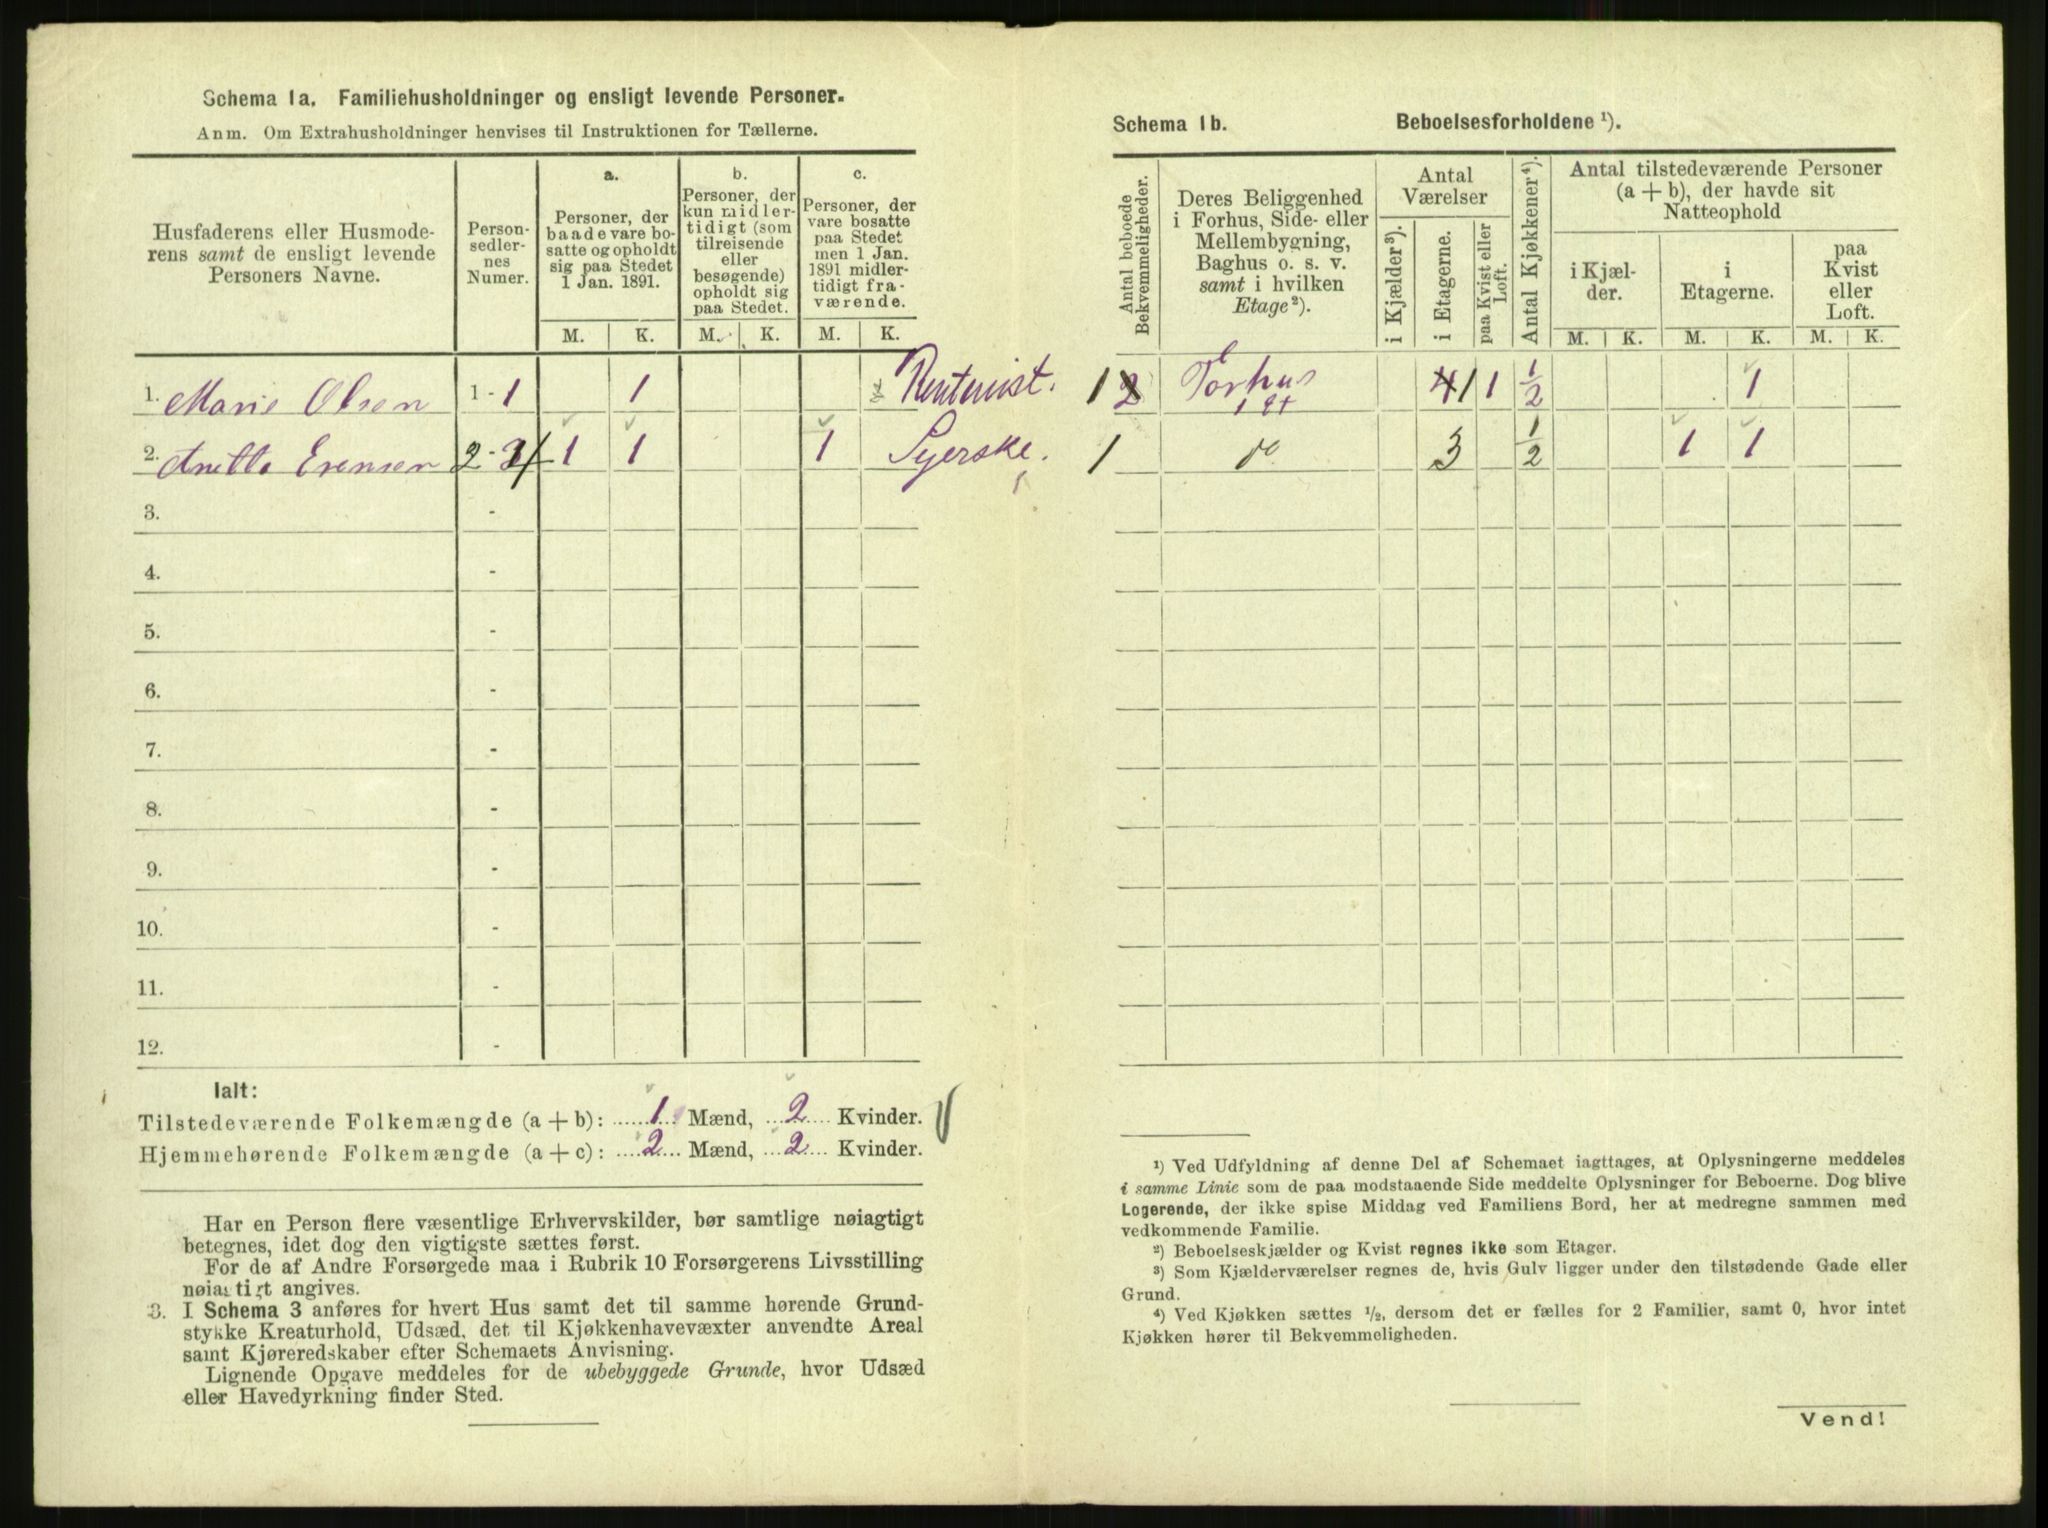 Schema 1a. Familiehusholdninger og ensligt levende Personer.
Anm. Om Extrahusholdninger henvises til Instruktionen for Tællerne.
Husfaderens eller Husmode-
rens samt de ensligt levende
Personers Navne.
Person-
sedler-
nes
Numer.
a.
Personer, der
baade vare bo-
satte og opholdt
sig paa Stedet
1 Jan. 1891.
b.
Personer, der
kun midler-
tidigt (som
tilreisende
eller
besøgende)
opholdt sig
paa Stedet.
c.
Personer, der
vare bosatte
paa Stedet
men 1 Jan.
1891 midler-
tidigt fra-
værende.
M. K. M. K. M. K.
1. Marie Olsen 1 - 1 1 Rentenist.
2. Evensen 2 - 1 1 1 Syerske.
3. -
4. -
5. -
6. -
7. -
8. -
9. -
10. -
11. -
12. -
Ialt:
Tilstedeværende Folkemængde (a + b): 1 Mænd, 2 Kvinder.
Hjemmehørende Folkemængde (a + c): 2 Mænd, 2 Kvinder.
Har en Person flere væsentlige Erhvervskilder, bør samtlige nøiagtigt
betegnes, idet dog den vigtigste sættes først.
For de af Andre Forsørgede maa i Rubrik 10 Forsørgerens Livsstilling
nøiagtigt angives.
3. I Schema 3 anføres for hvert Hus samt det til samme hørende Grund-
stykke Kreaturhold, Udsæd, det til Kjøkkenhavevæxter anvendte Areal
samt Kjøreredskaber efter Schemaets Anvisning.
Lignende Opgave meddeles for de ubebyggede Grunde, hvor Udsæd
eller Havedyrkning finder Sted.
Schema 1b. Beboelsesforholdene ¹).
Antal beboede
Bekvemmeligheder.
Deres Beliggenhed
i Forhus, Side- eller
Mellembygning,
Baghus o. s. v.
samt i hvilken
Etage²).
Antal
Værelser
i Kjælder³).
i Etagerne.
paa Kvist eller
Loft.
Antal Kjøkkener⁴).
Antal tilstedeværende Personer
(a + b), der havde sit
Natteophold
i Kjæl-
der.
i
Etagerne.
paa
Kvist
eller
Loft.
M. K. M. K. M. K.
1 2 Forhus 4 1 1 1/2 1
1 do 3 1/2 1 1
¹) Ved Udfyldning af denne Del af Schemaet iagttages, at Oplysningerne meddeles
i samme Linie som de paa modstaaende Side meddelte Oplysninger for Beboerne. Dog blive
Logerende, der ikke spise Middag ved Familiens Bord, her at medregne sammen med
vedkommende Familie.
²) Beboelseskjælder og Kvist regnes ikke som Etager.
³) Som Kjælderværelser regnes de, hvis Gulv ligger under den tilstødende Gade eller
Grund.
⁴) Ved Kjøkken sættes ¹/₂, dersom det er fælles for 2 Familier, samt 0, hvor intet
Kjøkken hører til Bekvemmeligheden.
Vend!